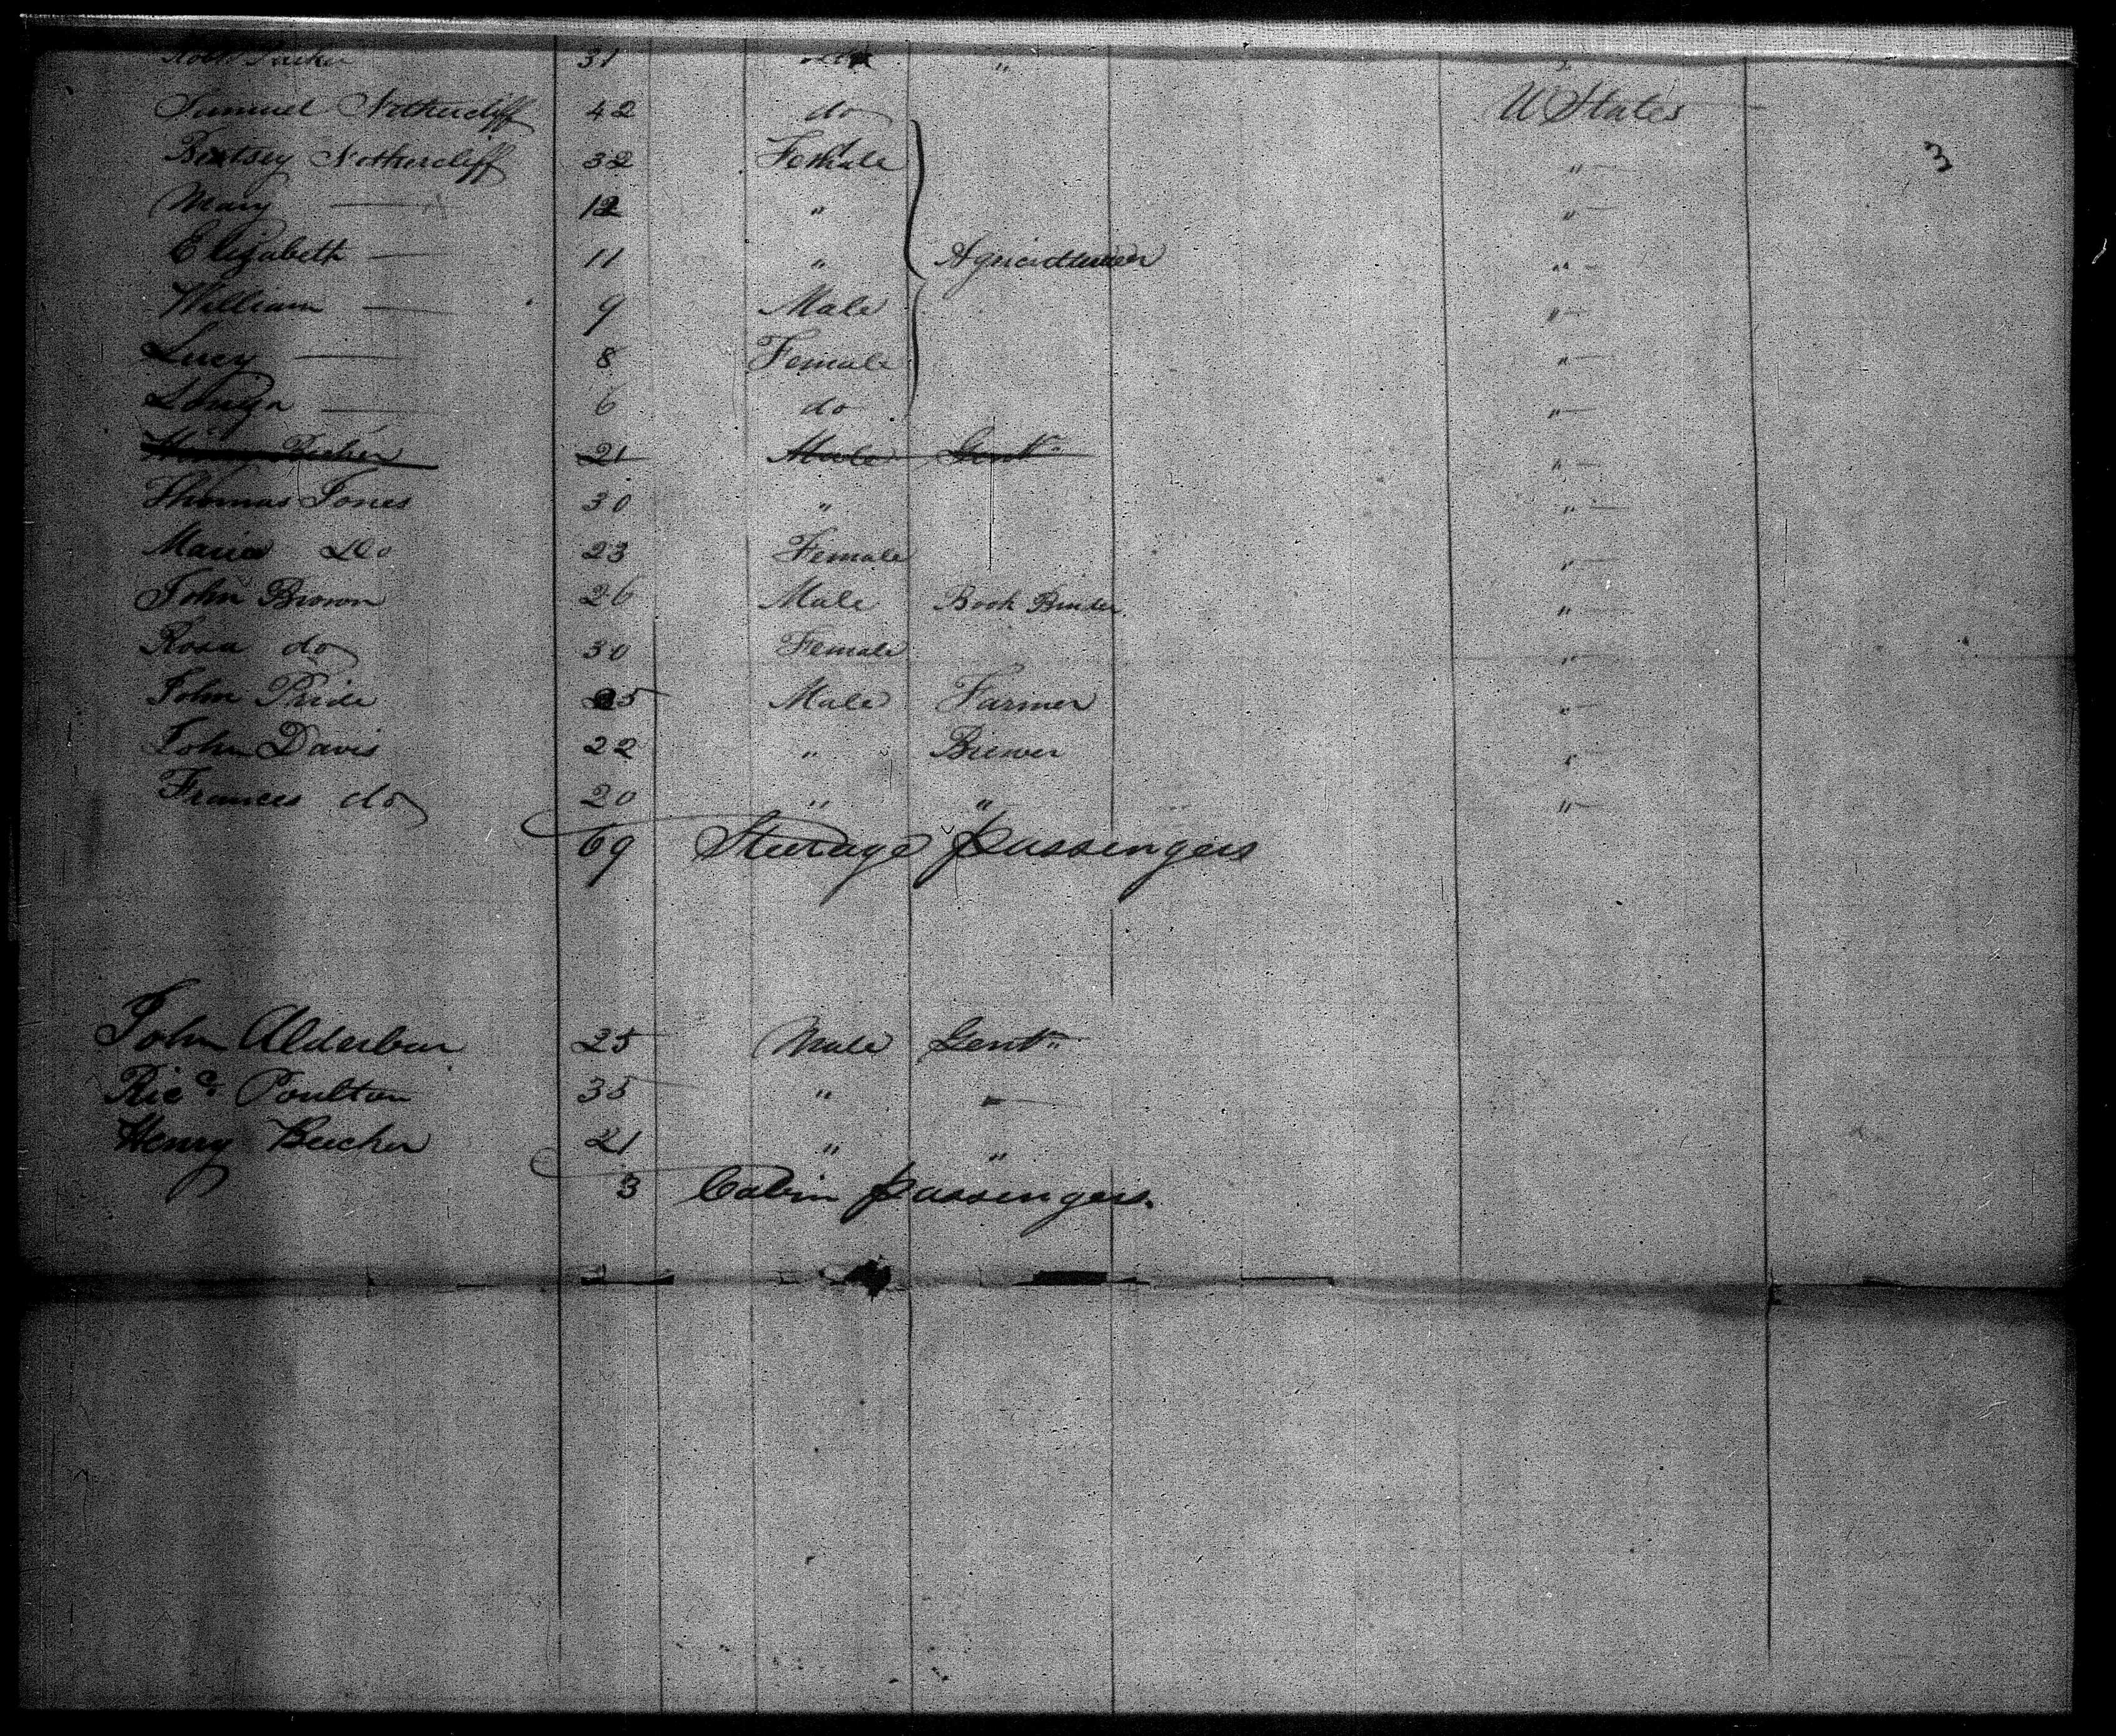 31 "
Samuel Nethercliff 42 do U States
Betsey Nethercliff 32 Female " 3
Mary — 12 " "
Elizabeth — 11 " "
William — 9 Male "
Lucy — 8 Female "
Louiza — 6 do "
21 Male Gentn "
Thomas Jones 30 " "
Maria Do 23 Female "
John Brown 26 Male Book Binder "
Rosa do 30 Female "
John Pride 25 Male Farmer "
John Davis 22 " Brewer "
Frances do 20 " " "
69 Steerage passengers
John Alderbur 25 Male Gentn
Ricd Poulton 35 " "
Henry Beecher 21 " "
3 Cabin passengers.